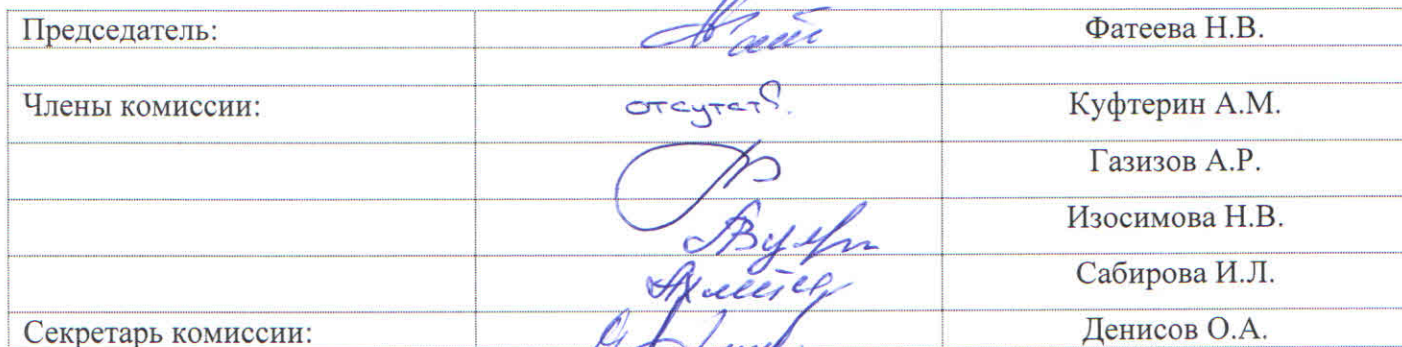 Председатель: Фатеева Н.В.
Члены комиссии: отсутст. Куфтерин А.М.
Газизов А.Р.
Изосимова Н.В.
Сабирова И.Л.
Секретарь комиссии: Денисов О.А.